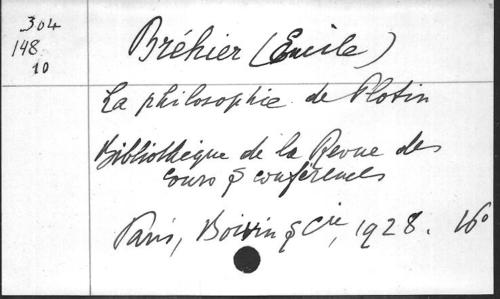 304
148
10
Bréhier (Emile)
La philosophie de Plotin
Bibliothèque de la Revue des
Cours & conférences
Paris, Boivin & Cie, 1928. 16°